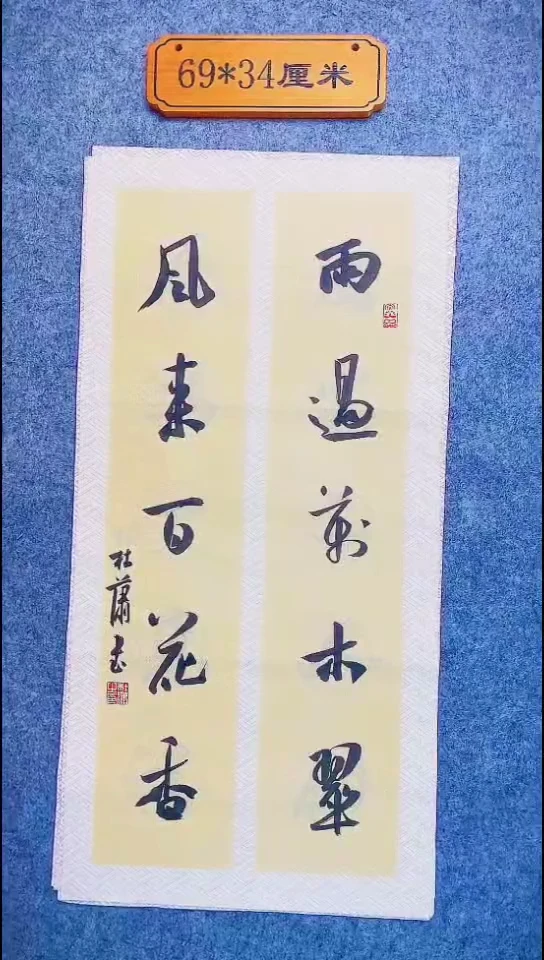 69*34厘米
雨過萬木翠
風來百花香
杜蕭书